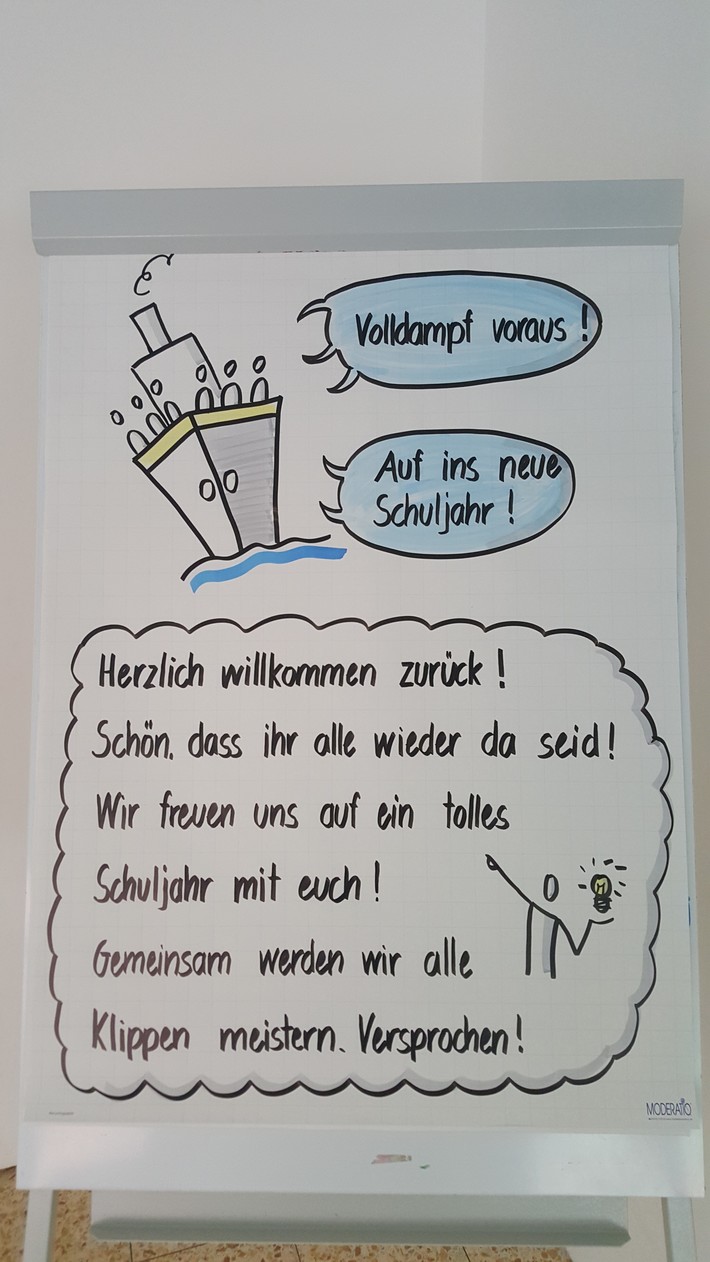 Volldampf voraus!
Auf ins neue
Schuljahr!
Herzlich willkommen zurück!
Schön, dass ihr alle wieder da seid!
Wir freuen uns auf ein tolles
Schuljahr mit euch!
Gemeinsam werden wir alle
Klippen meistern. Versprochen!
MODERATIO